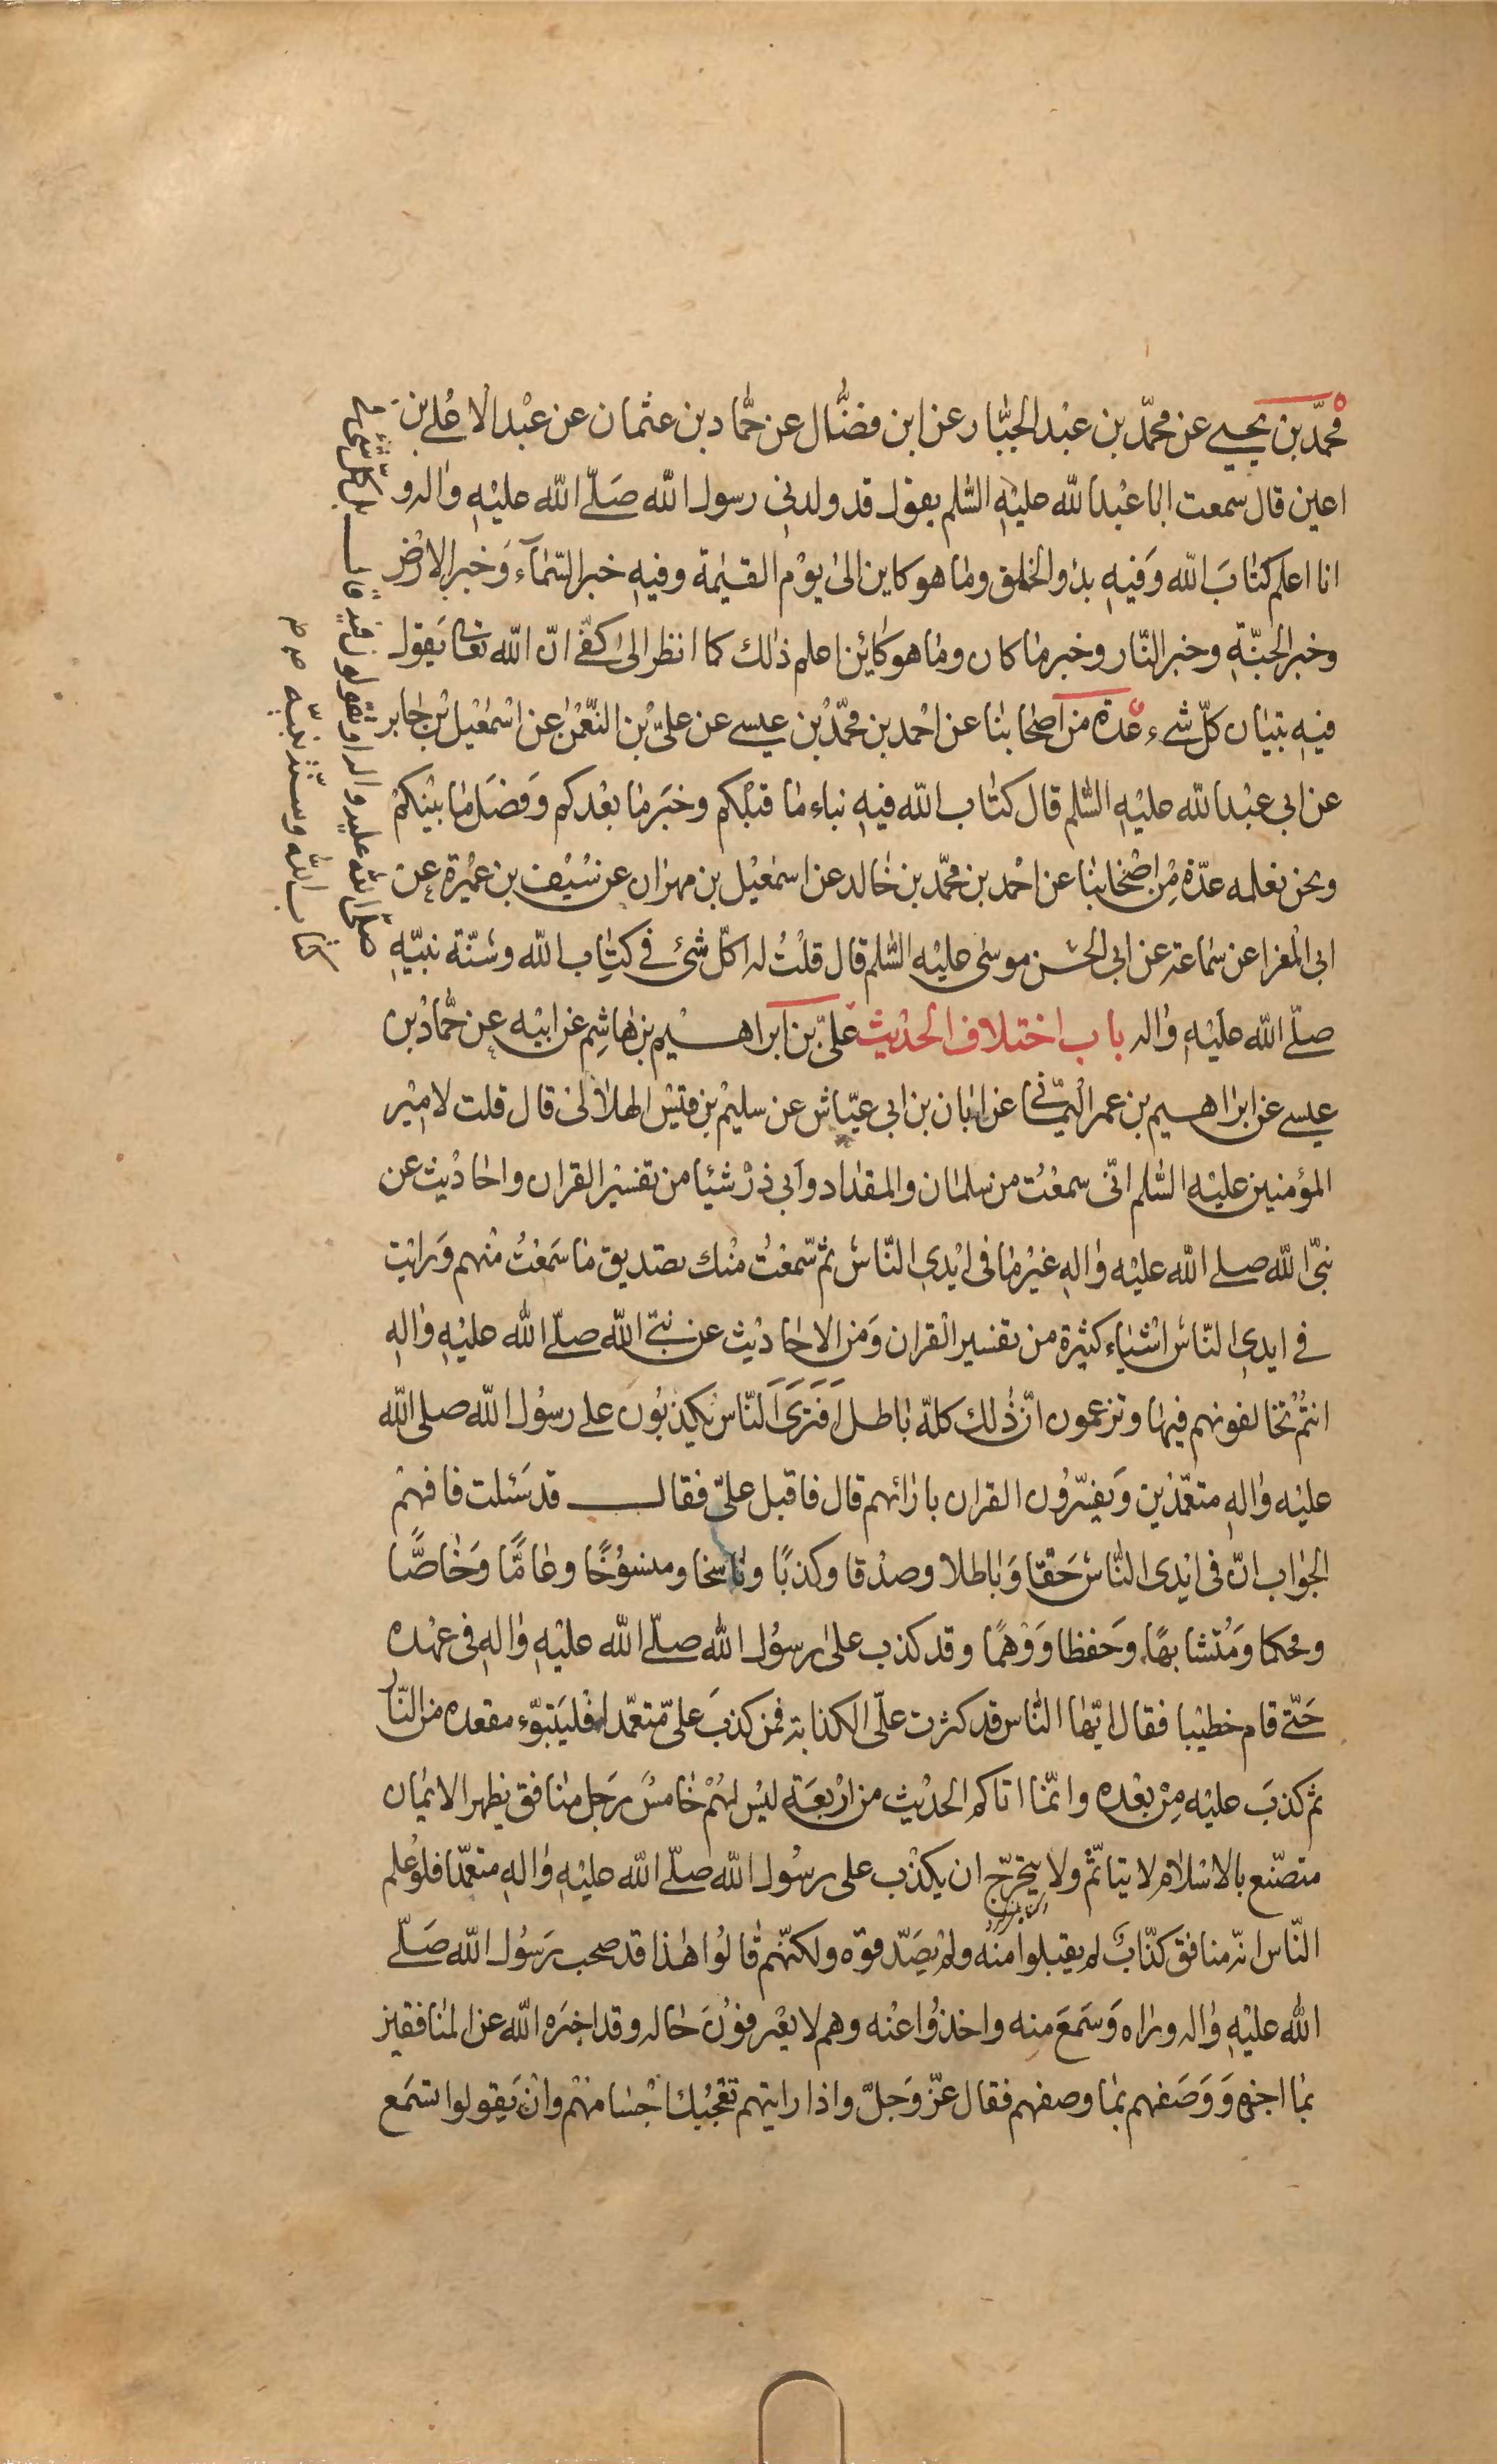 محمّد بن يحيى عن محمّد بن عبْد الجبّار عن ابن فضّال عن حمّاد بن عثمان عن عبْد الاعْلى بن
اعين قال سمعت ابا عبْد الله عليْهِ السّلم يقول قد ولدنى رسول الله صَلّى الله عليْهِ واله و
انا اعلم كتابَ الله وَفيهِ بدؤ الخلق وما هو كاين الى يوْم القيٰمة وفيهِ خبر السّمآء وَخبر الارْض
وخبر الجنّةِ وخبر النّار وخبر ما كان وما هو كائن اعلم ذلك كما انظر الى كفّى انّ الله تعا يَقول
فيهِ تبيان كلّ شىء عدّة من اصْحابنا عن احْمد بن محمّد بْن عيسى عن علىّ بْن النّعْمٰن عن اسْمٰعيْل بْن جابر
عن ابى عبْد الله عليْهِ السّلم قال كتاب الله فيهِ نباء ما قبْلكم وخبَر ما بعْدكم وَفصَل ما بيْنكمْ
ونحن نعلمه عدّة مِنْ اصْحابنا عن احْمد بن محمّد بن خالد عن اسمٰعيْل بن مهران عن سَيْف بن عمْيرة عن
ابى المغرا عن سَماعة عن ابى الحسَن موسى عليْه السّلم قال قلْتُ له اكلّ شىْء فى كتاب الله وسُنّة نبيّهِ
صلّى الله عليْهِ واله باب اختلاف الحدْيث علىّ بن ابراهسيم بن هاشِم عن ابيْه عن حمّاد بْن
عيسى عن ابراهسيم بن عمر اليمْانى عن ابان بن ابى عيّاش عن سليْم بن قيْس الهلالىّ قال قلت لامِيْر
المؤمنين عليْهِ السّلم انّى سمعْتُ من سلمان والمقداد وابى ذرْ شيْئا من تفسيْر القران واحادْيث عن
نبىّ الله صلى الله عليْه والهِ غيْر ما فى ايْدى النّاسْ ثمّ سَمعْتُ منْك تصديق ما سَمعْتُ منْهم وَرايْت
فى ايدى النّاسْ اشْياء كثيْرة من تفسير القران وَمن الاحاديْث عن نبىّ الله صلّى الله عليْهِ والهِ
انتمْ تخالفونهم فيها وتزعمون انّ ذلك كلّه باطل اَفَتَرَى النّاس يَكذبُون على رسُول الله صلى الله
عليْه والهِ متعمّدْين وَيفسّرُون القران بارائهم قال فاقبل علىّ فقال قد سَئلت فافهمْ
الجوْاب انّ فى ايْدى النّاسْ حَقّا وَباطلا وصدْقا وكذبًا وناسخا ومنسوْخًا وعامًّا وَخاصًّا
ومحكما وَمُتشابهًا وَحفظا وَوْهمًا وقد كذب على رسُول الله صلّى الله عليْهِ والهِ فى عهْده
حَتّى قام خطيْبا فقال ايّها النّاس قد كثرت علّى الكذابة فمن كذبَ علىّ متعمّدا فلْيَتبوّء مقعده من النّار
ثم كذبَ عليْه مِنْ بعْده وانّما اتاكم الحدْيث من ارْبعَة ليْس لهُمْ خامسٌ رَجل منافق يظهر الايْمان
متصنّع بالاسْلام لا يتاثمّ ولا يتحرّج ان يكذْب على رسُول الله صلّى الله عليْهِ والهِ متعمّدا فلوْ عُلم
النّاس انّه منافق كذّابٌ لم يقبلوا منه ولم يصَدّقوّه ولكنّهم قالُوا هذا قد صحب رَسوُل الله صَلّى
الله عليْهِ واله وراه وَسَمعَ منه واخذوُا عنْه وهم لا يعْرفوْنَ حاله وقد اخبَره الله عن المنافقين
بما اخبره وَوَصَفهم بما وصفهم فقال عزّ وَجلّ واذا رايتهم تعْجبُك اجْسامهْم وانْ يَقولوا تسْمَع